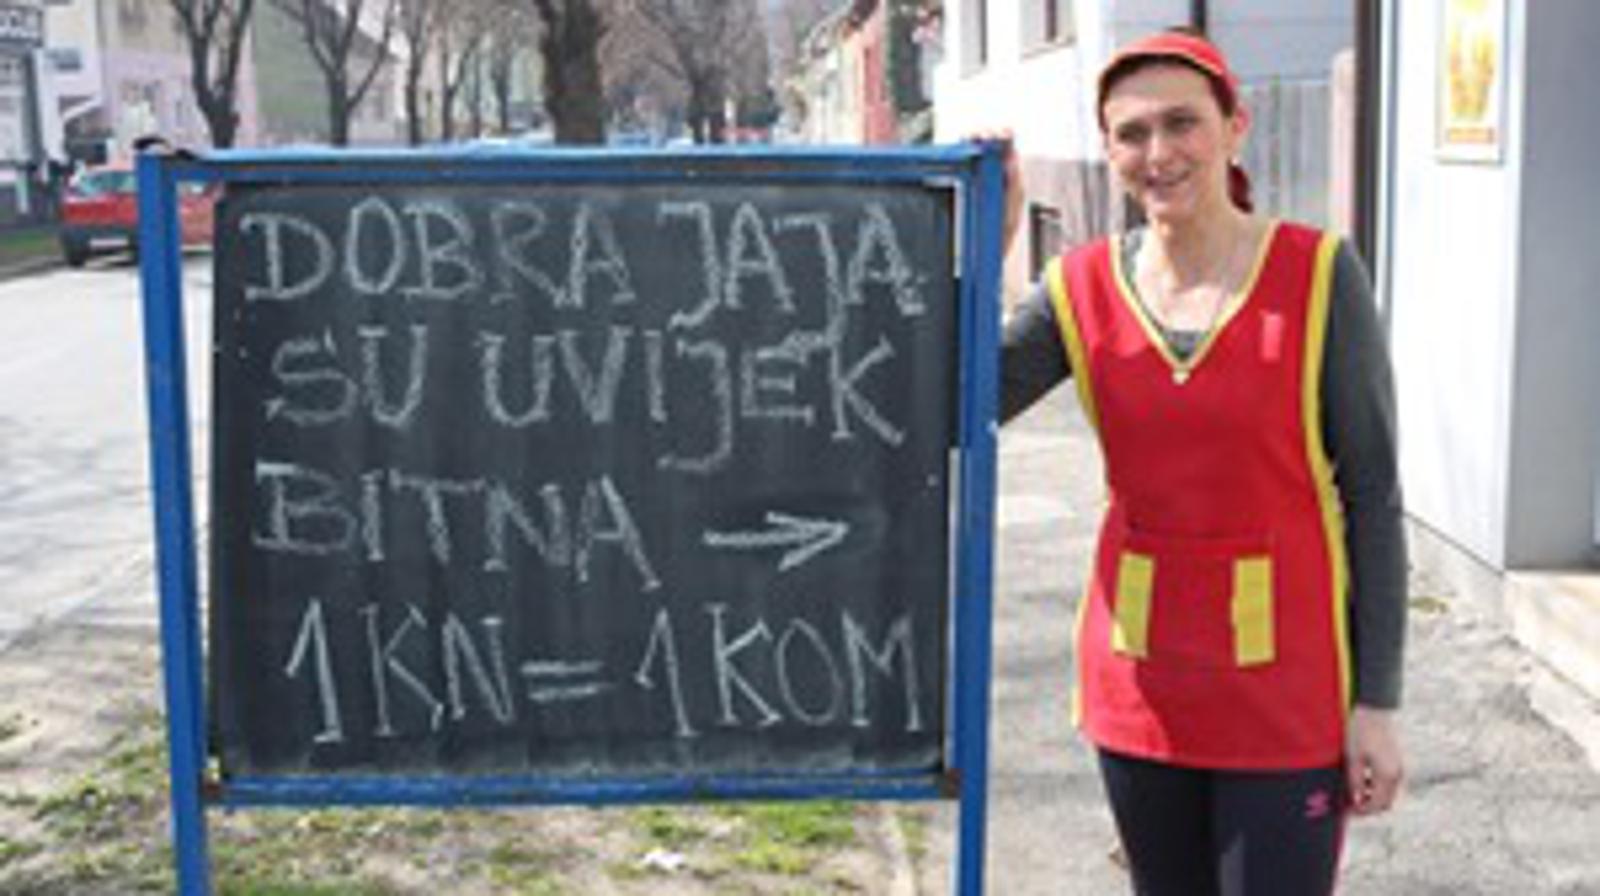 DOBRA JAJA
SU UVIJEK
BITNA →
1KN=1KOM